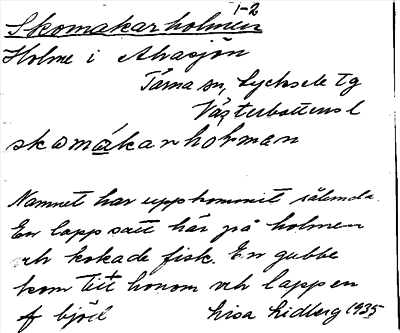 1-2
Skomakarholmen
Holme i Ahasjön
Tärna sn, Lycksele tg
Västerbottens l
skomákarholman
Namnet har uppkommit sålunda.
En lapp satt här på holmen
och kokade fisk. En gubbe
kom titt honom och lappen
f bjöd
Lisa Lidberg 1935